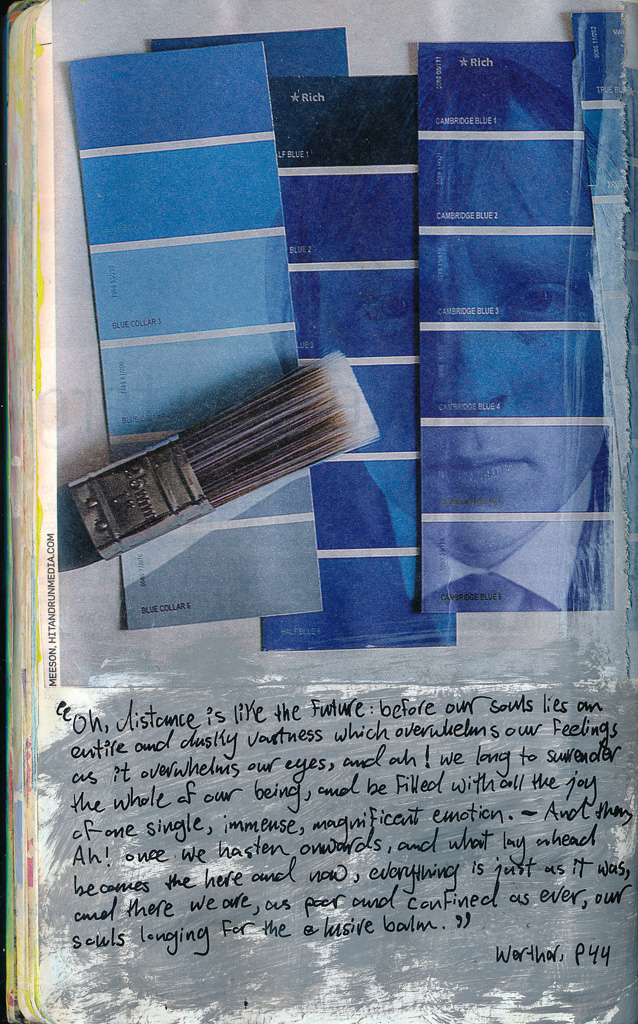 ★Rich
★Rich
CAMBRIDGE BLUE 1
LF BLUE 1
CAMBRIDGE BLUE 2
BLUE 2
CAMBRIDGE BLUE 3
BLUE COLLAR 3
CAMBRIDGE BLUE 4
BLUE COLLAR 6
CAMBRIDGE BLUE 6
HALF BLUE 6
MEESON, HITANDRUNMEDIA.COM
"Oh, distance is like the future: before our souls lies an
entire and dusky vastness which overwhelms our feelings
as it overwhelms our eyes, and ah! we long to surrender
the whole of our being, and be filled with all the joy
of one single, immense, magnificent emotion. – And then,
Ah! once we hasten onwards, and what lay ahead
becomes the here and now, everything is just as it was,
and there we are, as poor and confined as ever, our
souls longing for the elusive balm."
Werther, P44